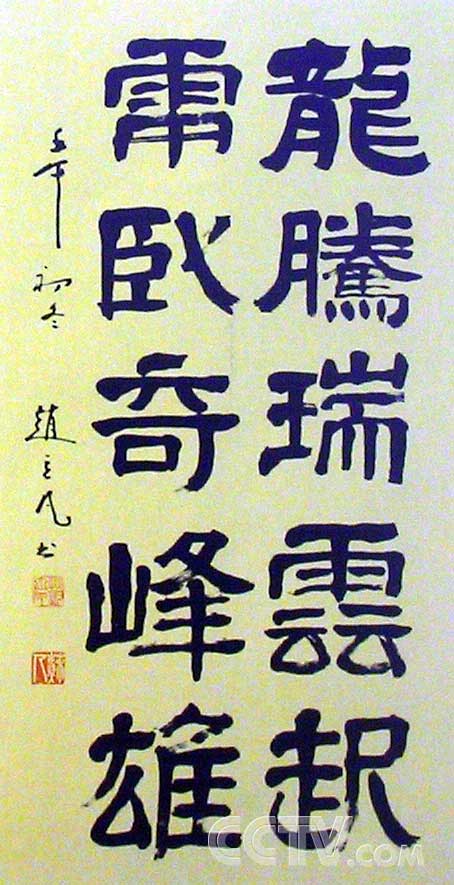 龍騰瑞雲起
虎臥奇峰雄
壬午初冬 趙立凡书
CCTV.com